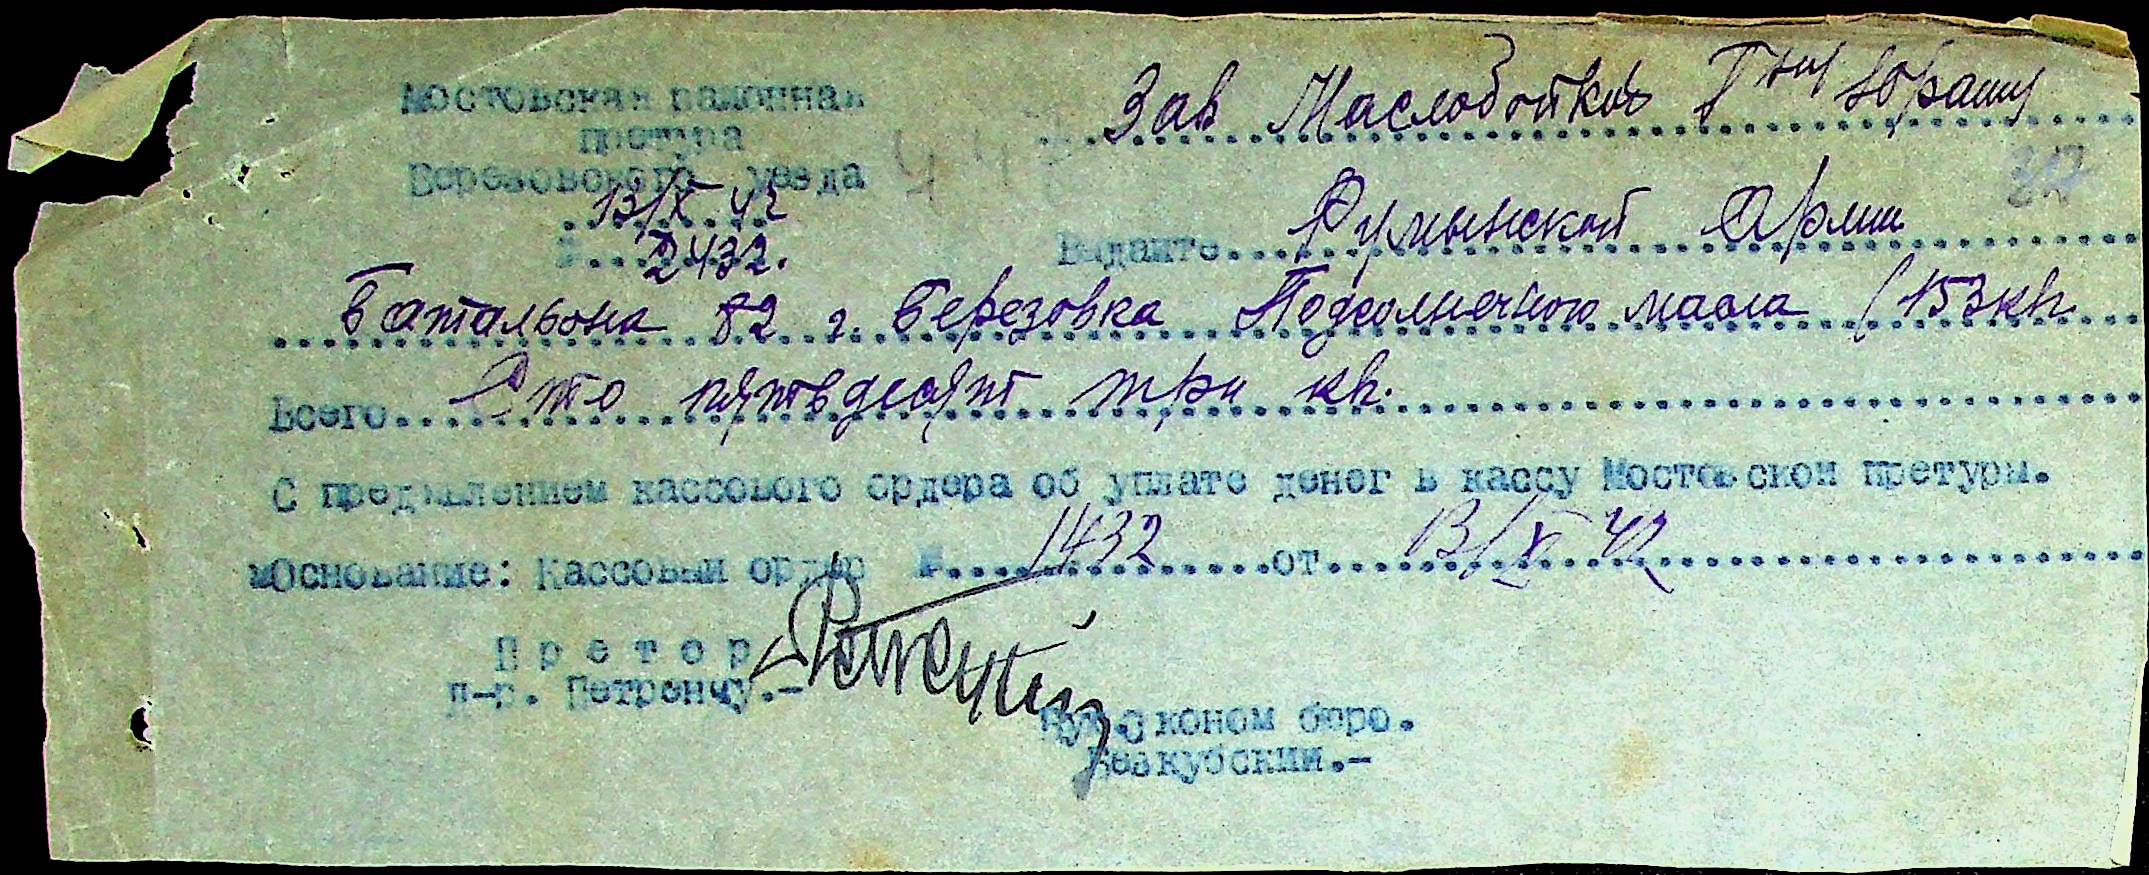 Мостовская районная
претура
Березовского уезда
13/X 42
№ 2432.
Зав Маслобойкой Г-ну Юрашу
317
Выдайте Румынской Армии
Батальона 82 г. Березовка Подсолнечного масла (153 кг
Всего Сто пятьдесят три кг.
С предъявлением кассового ордера об уплате денег в кассу Мостовской претуры.
Основание: Кассовый ордер № 1432 от 13/X 42
Претор
Д-р. Петренчу.-
Зконом бюро.
Безкубский.-